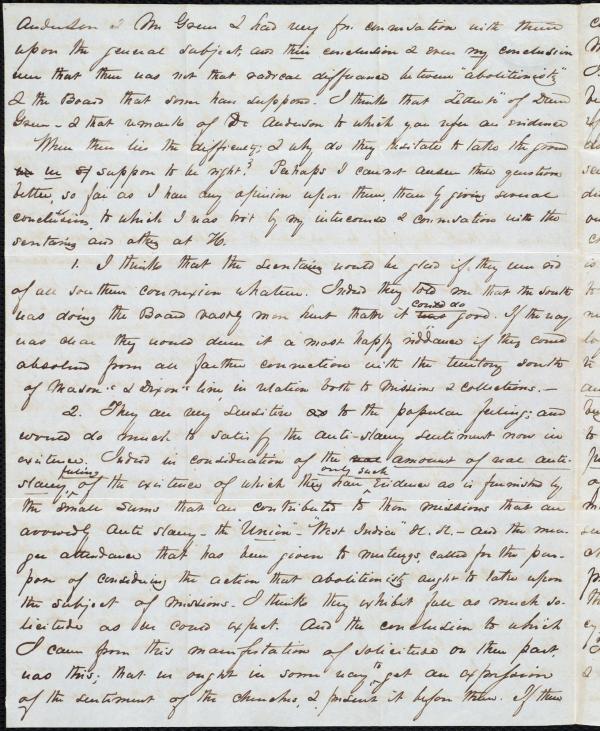 Anderson & Mr Green I had very fr. conversation with them
upon the general subject, and their conclusion & even my conclusion
were that there was not that radical difference between "abolitionists"
& the Board that some have supposed. I think that "Letters" of David
Green - & that remarks of Dr Anderson to which you refer are evidence
Where then lies the difficulty; & why do they hesitate to take the ground
we suppose to be right? Perhaps I cannot answer these questions
better, so far as I have any opinion upon them, than by giving several
conclusions, to which I was bro't by my intercourse & conversation with the
secretaries and others at H.
1. I think that the secretaries would be glad if they were rid
of all southern connexion whatever. Indeed they told me that the south
was doing the Board vastly more hurt than it could do good. If the way
was clear they would deem it a most happy riddance if they could
absolved from all farther connection with the territory south
of Mason's & Dixon's line, in relation both to missions & collections.—
2. They are very sensitive to the popular feeling; and
would do much to satisfy the anti-slavery sentiment now in
existence. Indeed in consideration of the amount of real anti-
slavery feeling, of the existence of which they have only such evidence as is furnished by
the small sums that are contributed to those missions that are
avowedly anti slavery - the "Union" - "West India" &c. &c. - and the mea-
ger attendance that has been given to meetings, called for the pur-
pose of considering the action that abolitionists ought to take upon
the subject of missions. I think they exhibit full as much so-
licitude as we could expect. And the conclusion to which
I came from this manifestation of solicitude on their part,
was this; that we ought in some way to get an expression
of the sentiment of the churches, & present it before them. If there